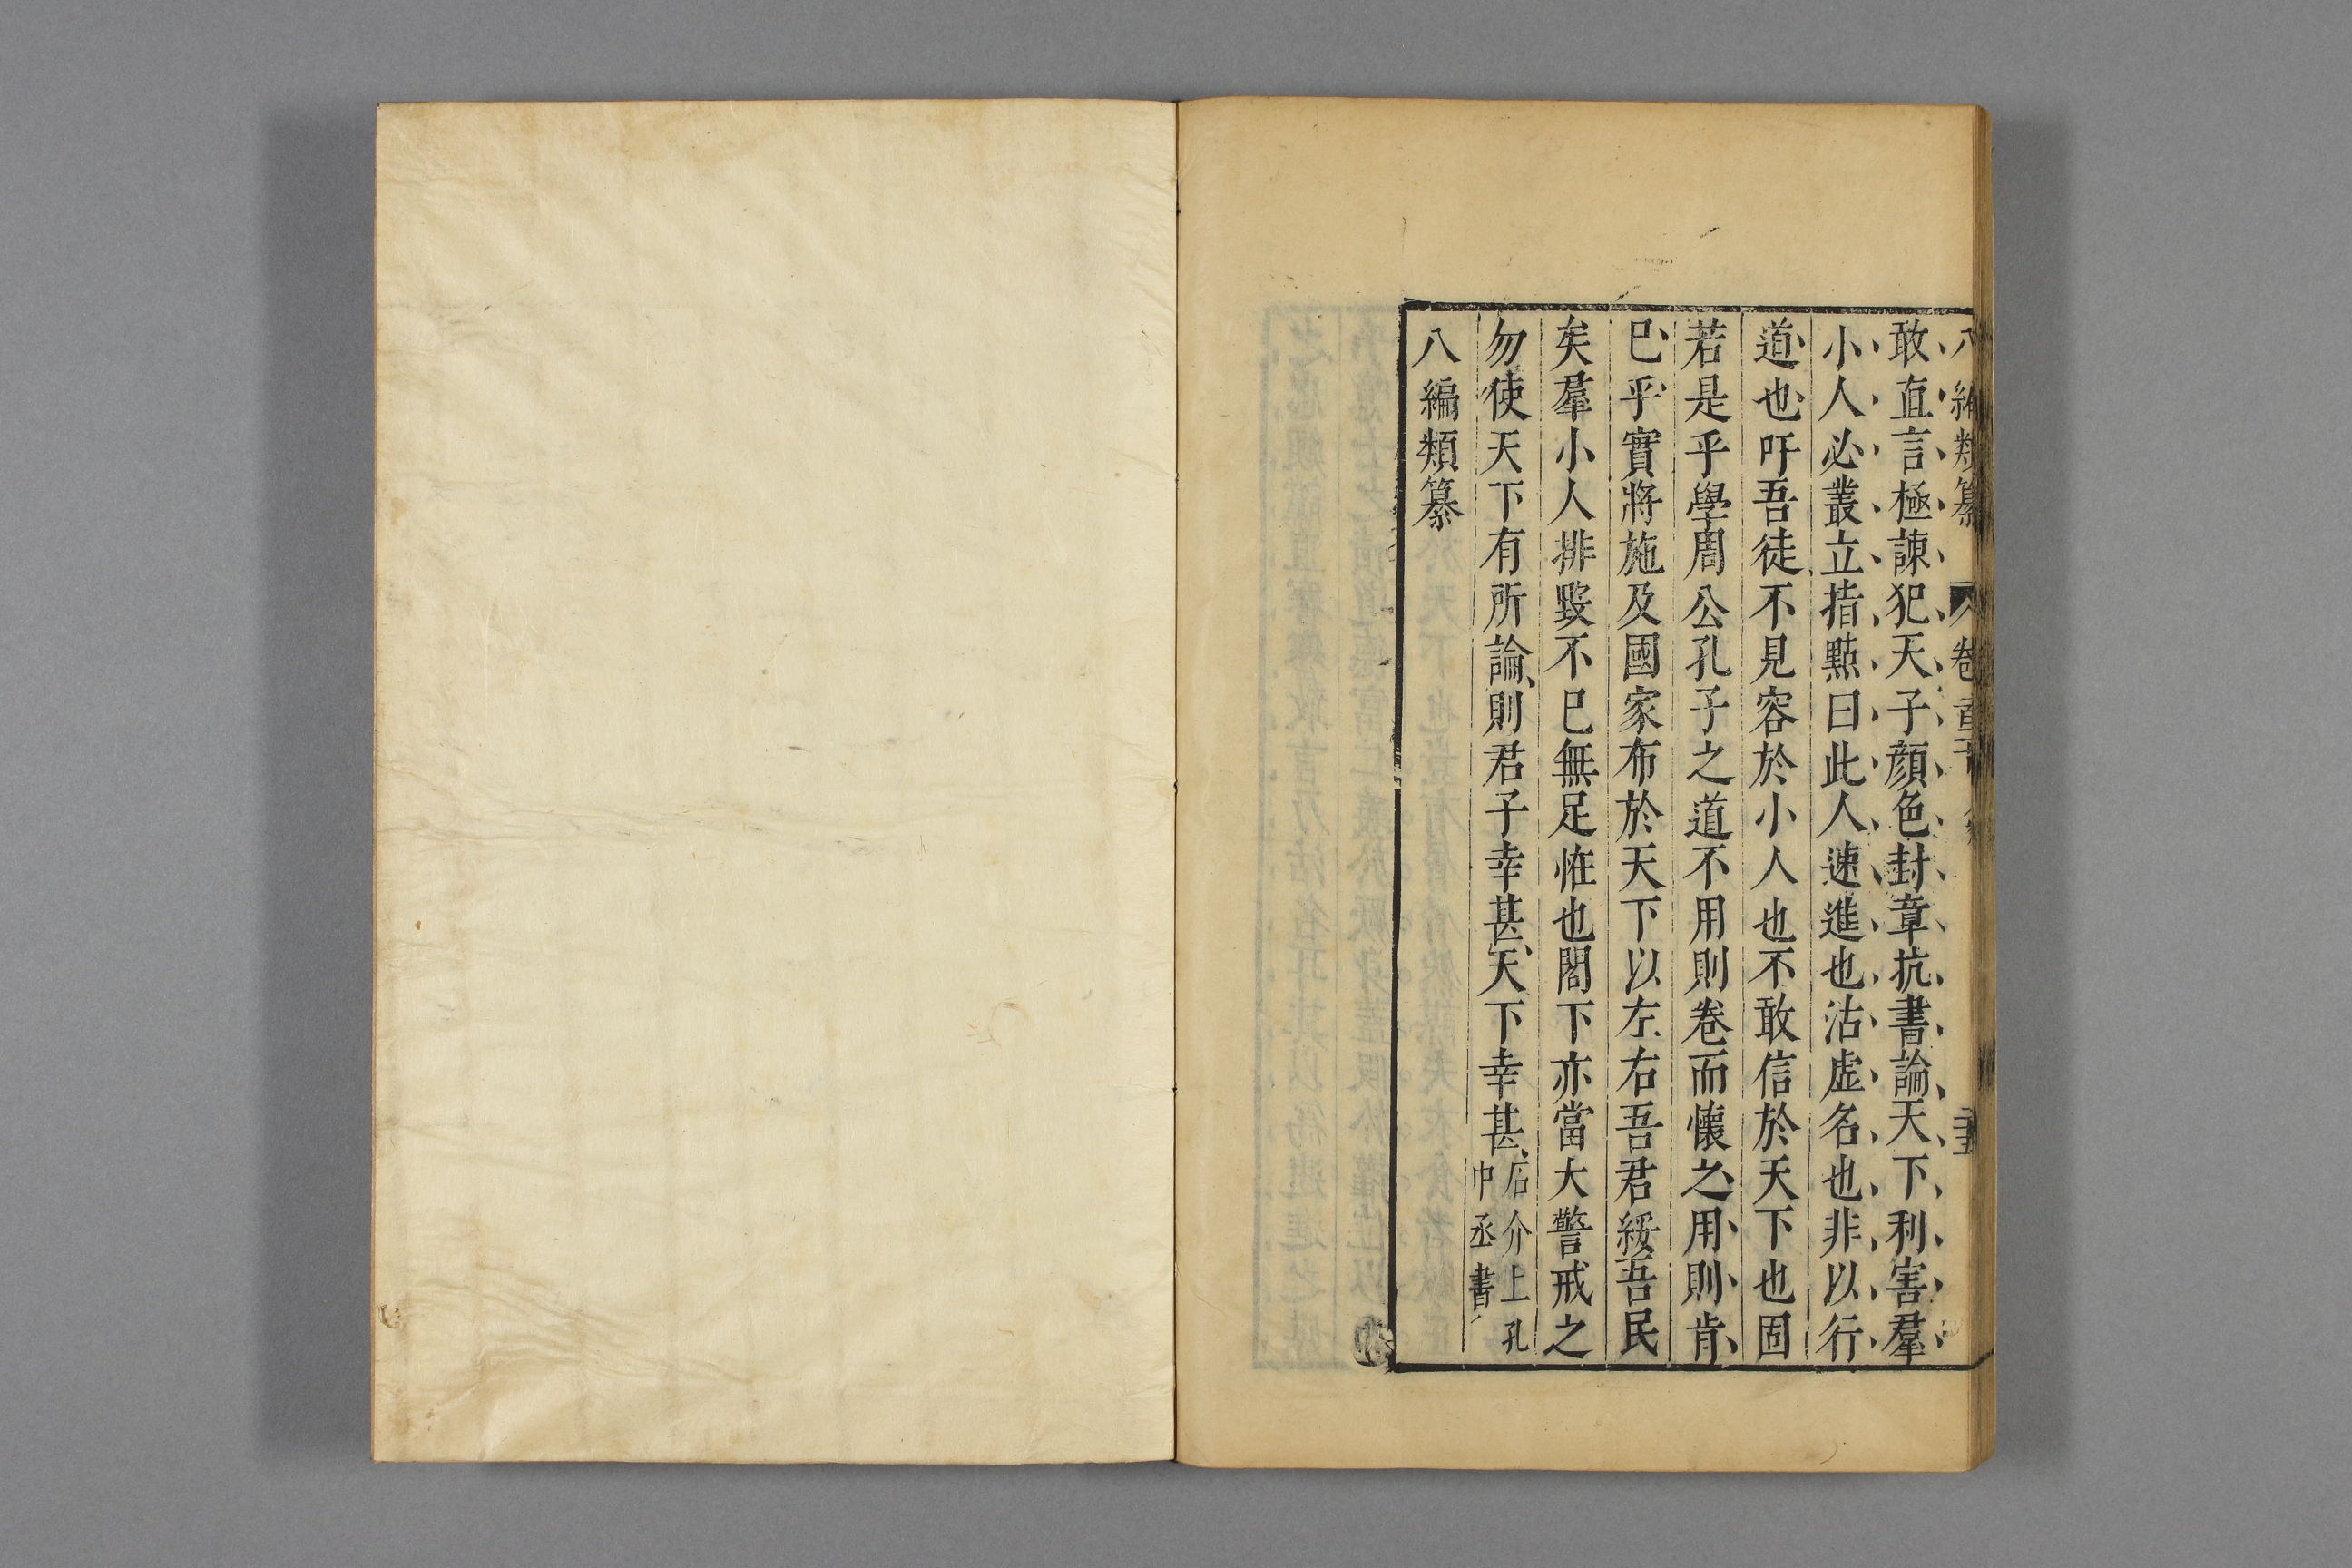 八編類纂 卷
敢直言極諫犯天子顔色封章抗書論天下利害羣
小人必叢立指點曰此人速進也沽虛名也非以行
道也吁吾徒不見容於小人也不敢信於天下也固
若是乎學周公孔子之道不用則卷而懷之用則肯
已乎實將施及國家布於天下以左右吾君綏吾民
矣羣小人排毀不已無足恠也閤下亦當大警戒之
勿使天下有所論則君子幸甚天下幸甚
石介上孔
中丞書
八編類纂